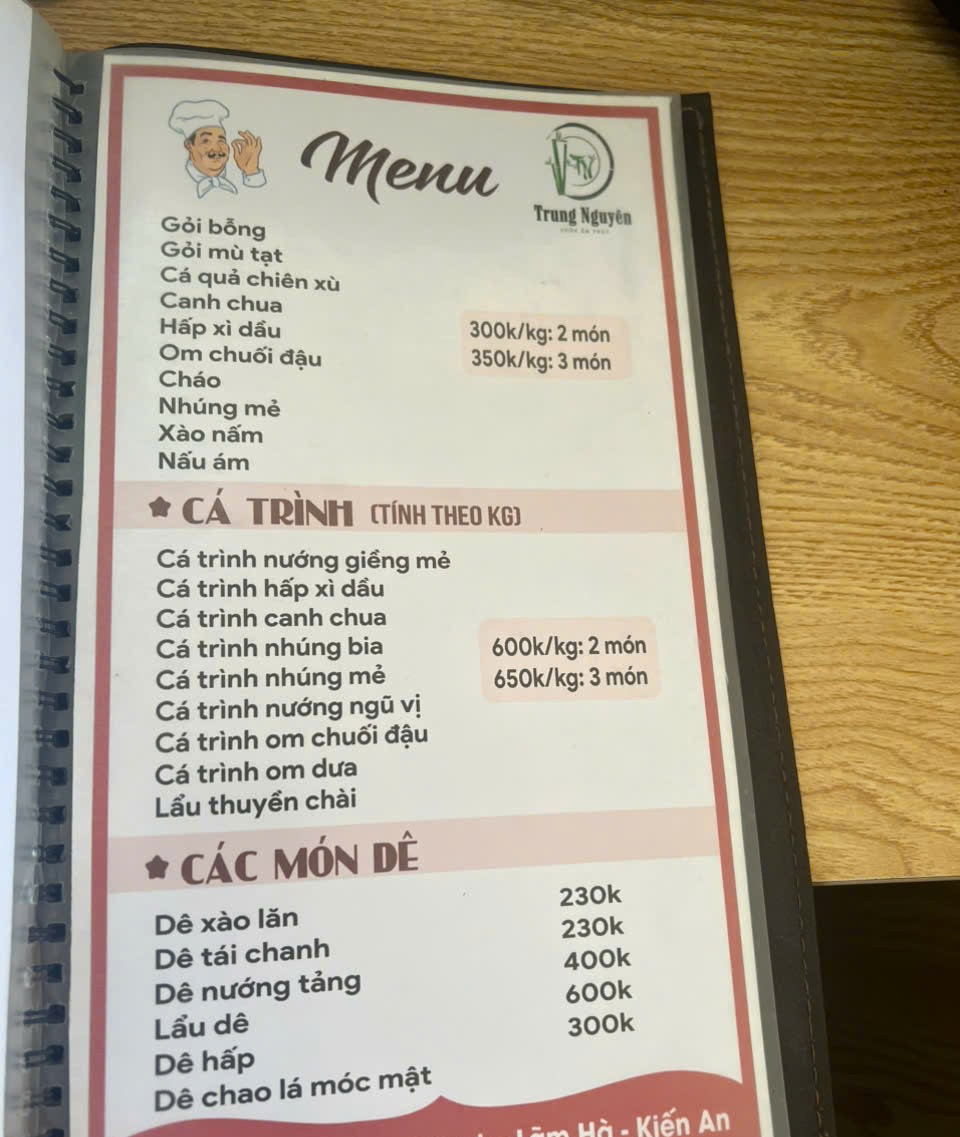 Menu
Trung Nguyên
Gỏi bỗng
Gỏi mù tạt
Cá quả chiên xù
Canh chua
Hấp xì dầu
300k/kg: 2 món
Om chuối đậu
350k/kg: 3 món
Cháo
Nhúng mẻ
Xào nấm
Nấu ám
CÁ TRÌNH (TÍNH THEO KG)
Cá trình nướng giềng mẻ
Cá trình hấp xì dầu
Cá trình canh chua
Cá trình nhúng bia
600k/kg: 2 món
Cá trình nhúng mẻ
650k/kg: 3 món
Cá trình nướng ngũ vị
Cá trình om chuối đậu
Cá trình om dưa
Lẩu thuyền chài
CÁC MÓN DÊ
Dê xào lăn 230k
Dê tái chanh 230k
Dê nướng tảng 400k
Lẩu dê 600k
Dê hấp 300k
Dê chao lá móc mật
Lãm Hà - Kiến An